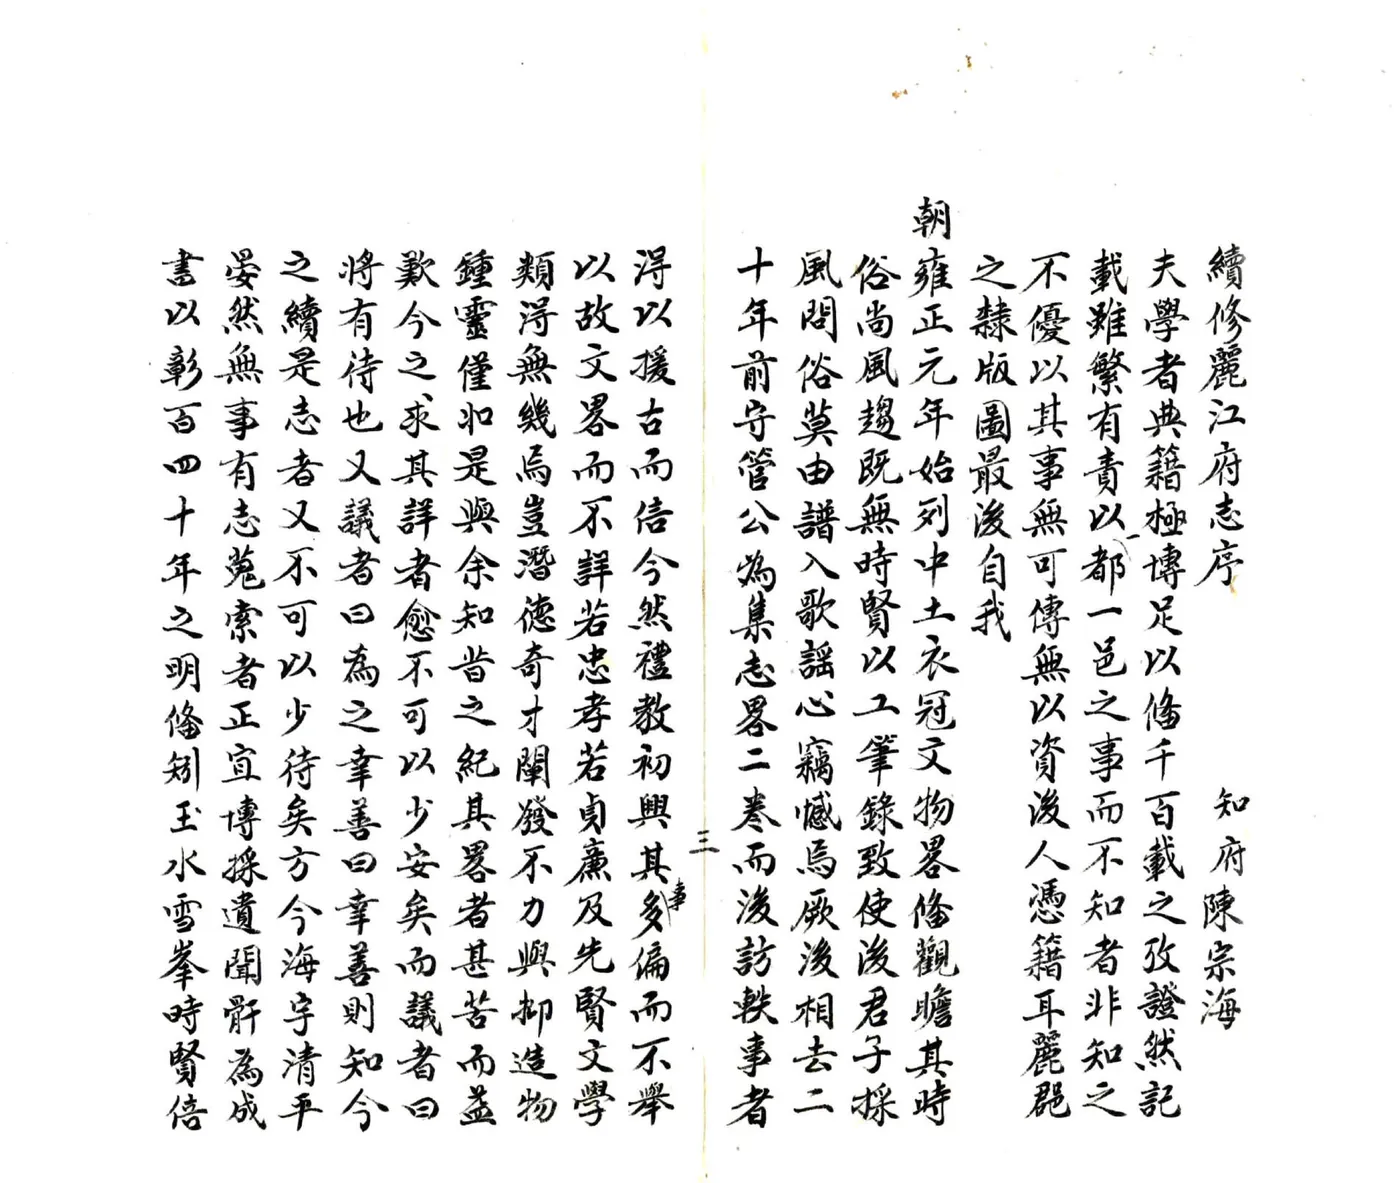 續修麗江府志序
知府陳宗海
夫學者典籍極博足以俻千百載之攷證然記
載雖繁有責以都一邑之事而不知者非知之
不優以其事無可傳無以資後人憑籍耳麗郡
之隸版圖最後自我
朝雍正元年始列中土衣冠文物畧俻觀瞻其時
俗尚風趨既無時賢以工筆錄致使後君子採
風問俗莫由譜入歌謡心竊憾焉厥後相去二
十年前守管公為集志畧二卷而後訪軼事者
三
得以援古而信今然禮教初興其事多偏而不舉
以故文畧而不詳若忠孝若貞廉及先賢文學
類得無幾焉豈潛德奇才闡發不力與抑造物
鍾靈僅如是與余知昔之紀其畧者甚苦而益
歎今之求其詳者愈不可以少安矣而議者曰
將有待也又議者曰為之幸善曰幸善則知今
之續是志者又不可以少待矣方今海宇清平
晏然無事有志蒐索者正宜博採遺聞彙為成
書以彰百四十年之明俻矧玉水雪峯時賢倍